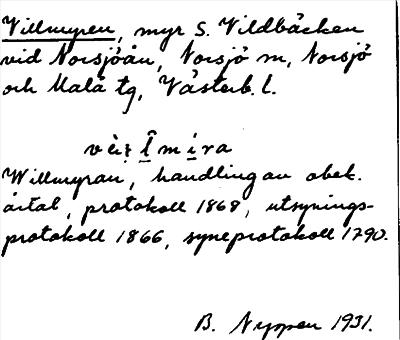 Villmyren, myr S. Vildbäcken
vid Norsjöån, Norsjö sn, Norsjö
och Malå tg, Västerb. l.
Willmyran, handlingar obek.
årtal, protokoll 1868, utsynings-
protokoll 1866, syneprotokoll 1790.
B. Nyppen 1931.